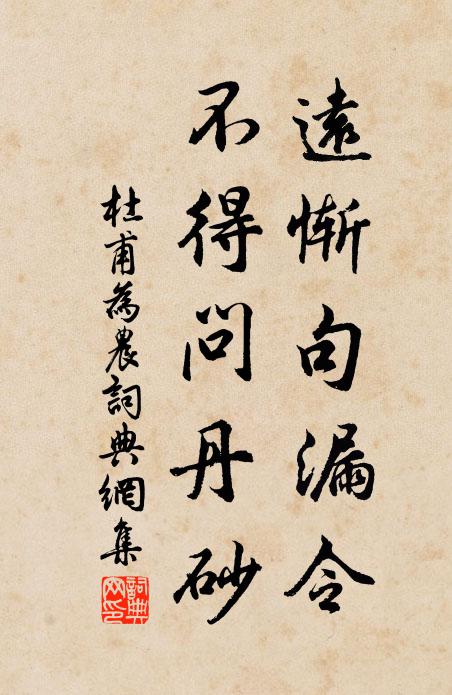 遠慚句漏令
不得問丹砂
杜甫為農詞典網集
詞典
网印